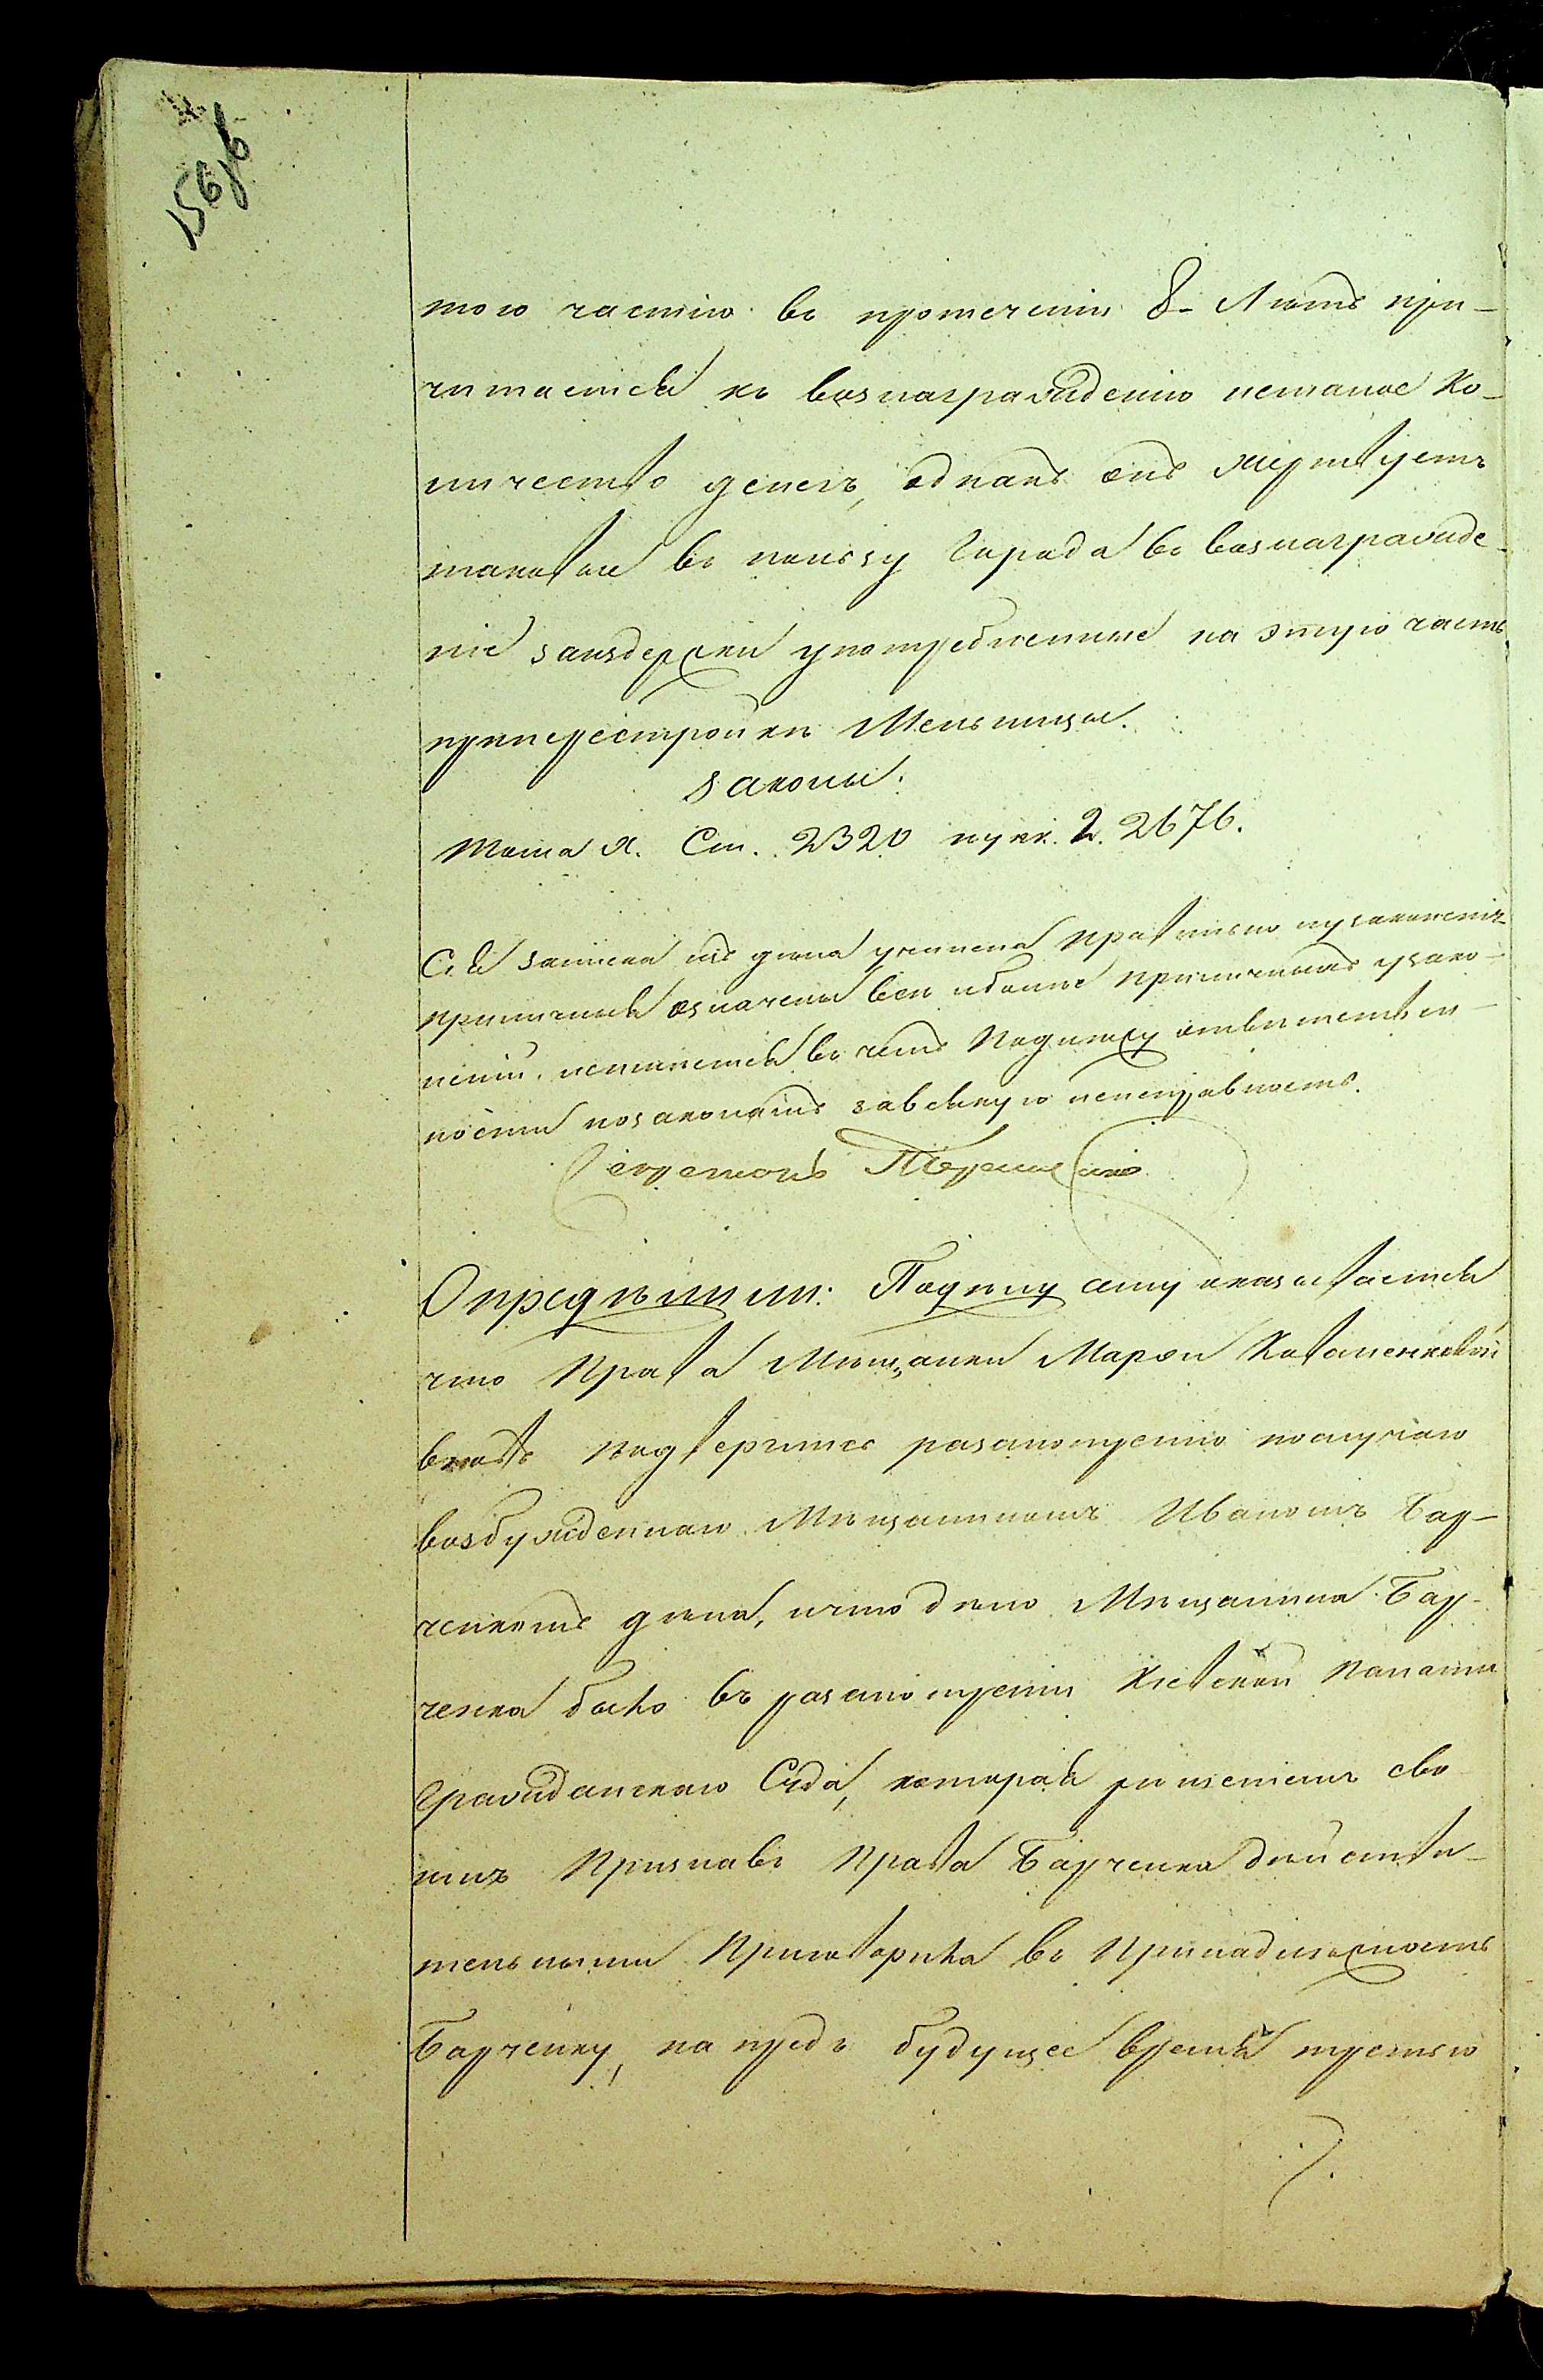 156 об
тою частію въ протеченіи 8-Лѣтъ при-
читается къ вознагражденію нетакое ко-
личество денегъ, однакъ онъ жертвуетъ
таковые въ пользу Города въ вознагражде-
ніе заиздержки употребленные на этую часть
припереcтройкѣ Мельницы.
Законы.
Тома X. Ст. 2320 пунк. 2. 2676.
Сія записка изъ дѣла учинена правильно иузаконенія
приличныя означены всѣ иболѣе приличныхъ узако-
неній неимѣется въ чемъ Подлежу отвѣтствен-
ности позаконамъ завсякую неисправность.
Секретарь
Опредѣлили: Подѣлу сему оказывается
что Права Мѣщанки Марѳи Коваленковой
вновь подверглись разсмотренію послучаю
возбужденнаго Мѣщаниномъ Иваномъ Бар-
ченкомъ дѣла, ичто дѣло Мѣщанина Бар-
ченка было въ разсмотреніи Кіевской Палаты
Гражданскаго Суда, которая рѣшеніемъ сво-
имъ Признавъ Права Барченка дѣйстви-
тельными Приговорила въ Принадлежность
Барченку, на предъ будущее время третью